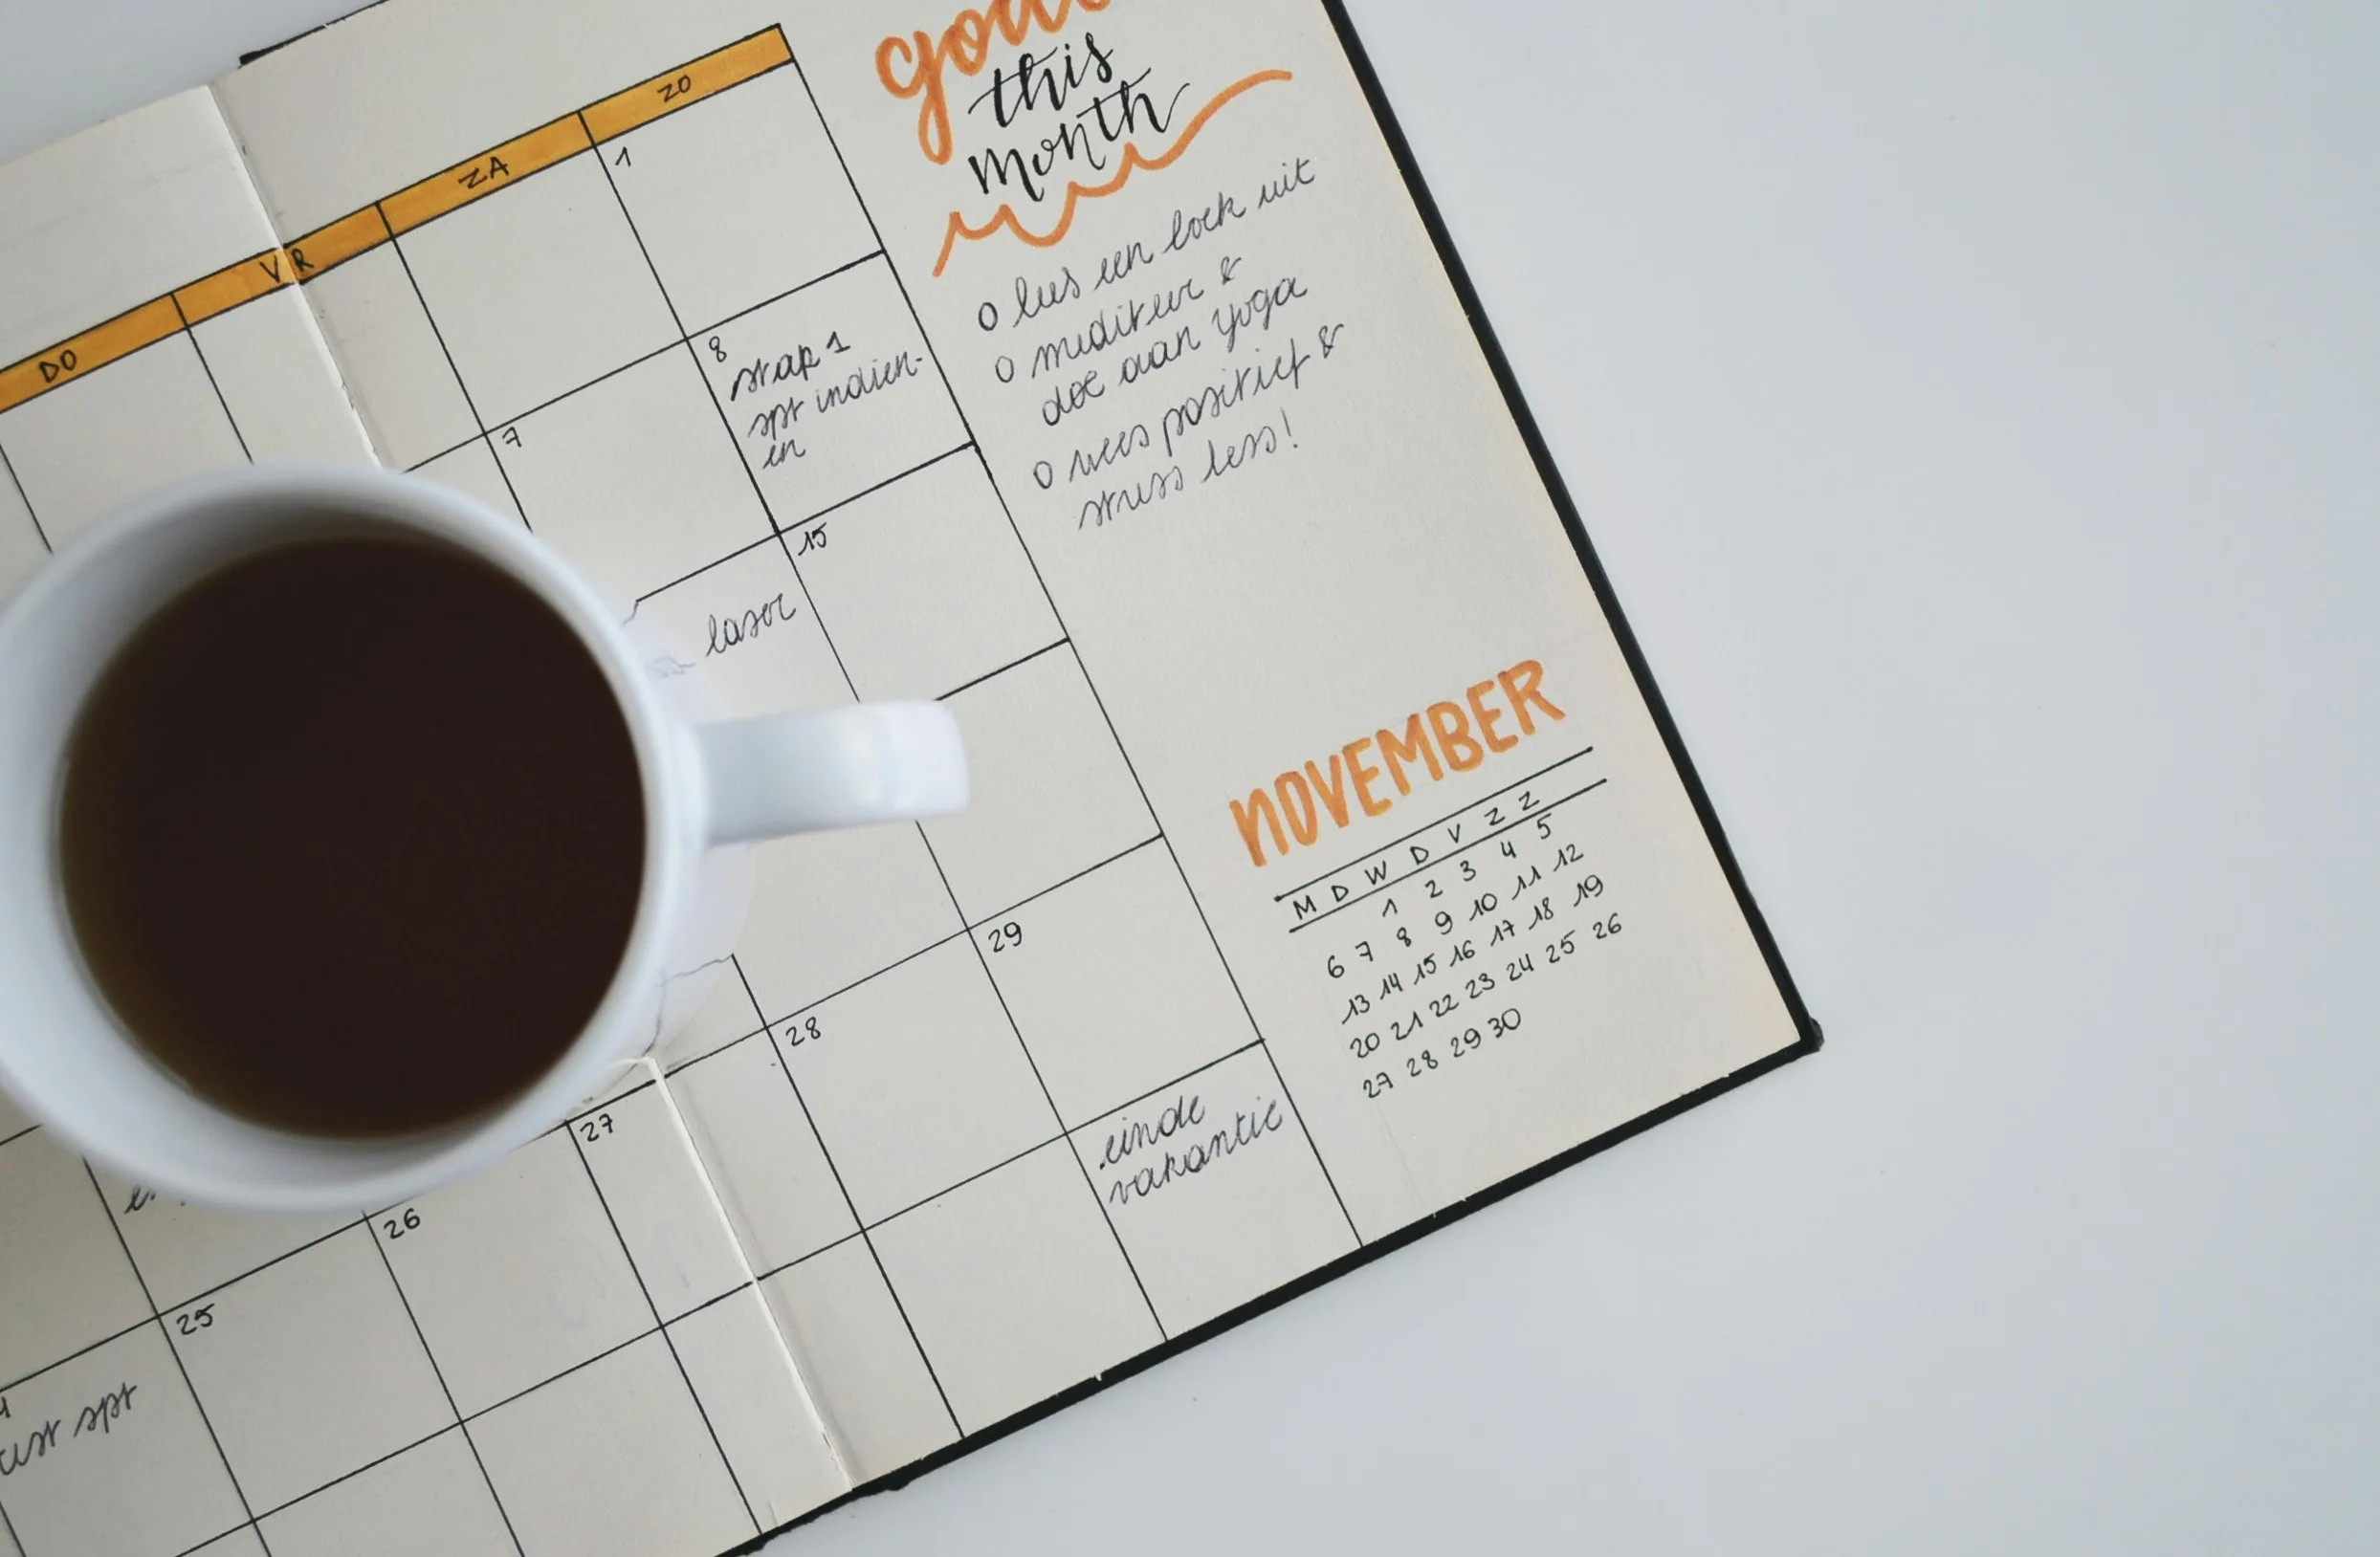 this
month
ZO
ZA
VR
DO
1
7
8
stap 1
spr indien-
en
15
laser
25
26
27
28
29
einde
vakantie
spr
o lees een boek uit
o mediteer &
doe aan yoga
o wees positief &
stress less!
NOVEMBER
M D W D V Z Z
1 2 3 4 5
6 7 8 9 10 11 12
13 14 15 16 17 18 19
20 21 22 23 24 25 26
27 28 29 30